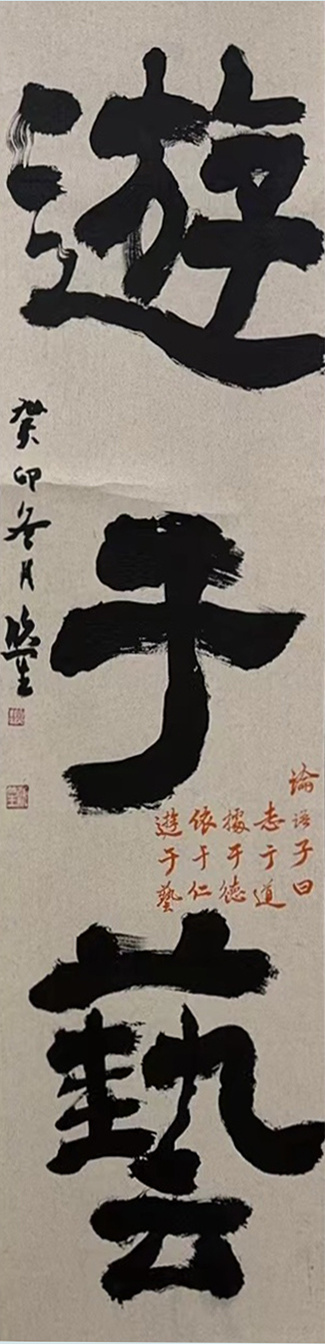 遊于藝
論語子曰
志于道
據于德
依于仁
遊于藝
癸卯冬月